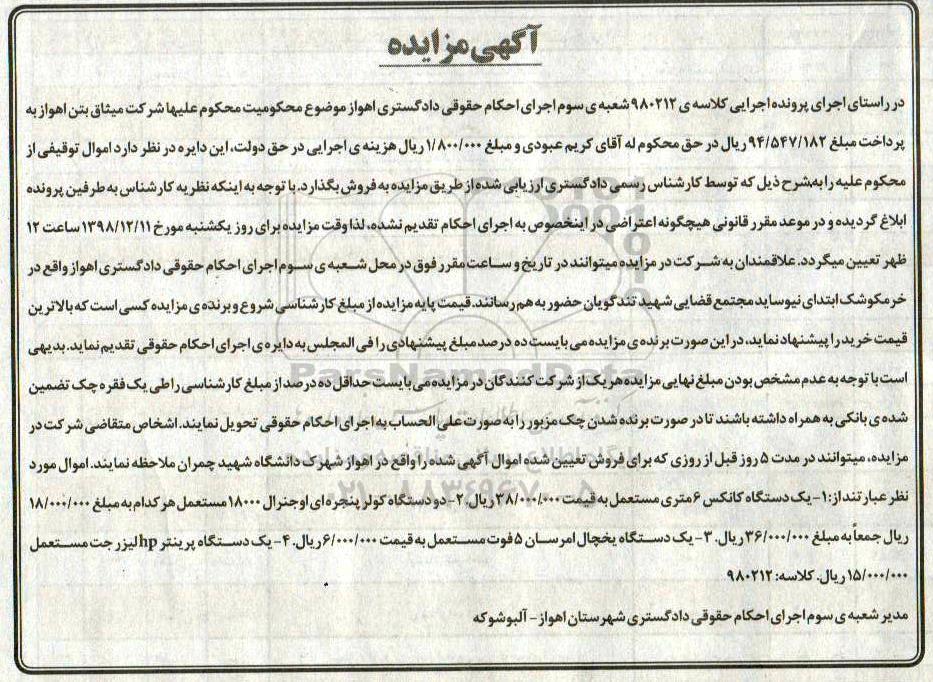 آگهی مزایده
در راستای اجرای پرونده اجرایی کلاسه ی ۹۸۰۲۱۲ شعبه ی سوم اجرای احکام حقوقی دادگستری اهواز موضوع محکومیت محکوم علیها شرکت میثاق بتن اهواز به
پرداخت مبلغ ۹۴/۵۴۷/۱۸۲ ریال در حق محکوم له آقای کریم عبودی و مبلغ ۱/۸۰۰/۰۰۰ ریال هزینه ی اجرایی در حق دولت، این دایره در نظر دارد اموال توقیفی از
محکوم علیه را به شرح ذیل که توسط کارشناس رسمی دادگستری ارزیابی شده از طریق مزایده به فروش بگذارد. با توجه به اینکه نظریه کارشناس به طرفین پرونده
ابلاغ گردیده و در موعد مقرر قانونی هیچگونه اعتراضی در اینخصوص به اجرای احکام تقدیم نشده، لذا وقت مزایده برای روز یکشنبه مورخ ۱۳۹۸/۱۲/۱۱ ساعت ۱۲
ظهر تعیین میگردد. علاقمندان به شرکت در مزایده میتوانند در تاریخ و ساعت مقرر فوق در محل شعبه ی سوم اجرای احکام حقوقی دادگستری اهواز واقع در
خرمکوشک ابتدای نیوساید مجتمع قضایی شهید تندگویان حضور به هم رسانند. قیمت پایه مزایده از مبلغ کارشناسی شروع و برنده ی مزایده کسی است که بالاترین
قیمت خرید را پیشنهاد نماید، در این صورت برنده ی مزایده می بایست ده درصد مبلغ پیشنهادی را فی المجلس به دایره ی اجرای احکام حقوقی تقدیم نماید. بدیهی
است با توجه به عدم مشخص بودن مبلغ نهایی مزایده هر یک از شرکت کنندگان در مزایده می بایست حداقل ده درصد از مبلغ کارشناسی را طی یک فقره چک تضمین
شده ی بانکی به همراه داشته باشند تا در صورت برنده شدن چک مزبور را به صورت علی الحساب به اجرای احکام حقوقی تحویل نمایند. اشخاص متقاضی شرکت در
مزایده، میتوانند در مدت ۵ روز قبل از روزی که برای فروش تعیین شده اموال آگهی شده را واقع در اهواز شهرک دانشگاه شهید چمران ملاحظه نمایند. اموال مورد
نظر عبارتند از: ۱- یک دستگاه کانکس ۶ متری مستعمل به قیمت ۳۸/۰۰۰/۰۰۰ ریال. ۲- دو دستگاه کولر پنجره ای اوجنرال ۱۸۰۰۰ مستعمل هر کدام به مبلغ ۱۸/۰۰۰/۰۰۰
ریال جمعاً به مبلغ ۳۶/۰۰۰/۰۰۰ ریال. ۳- یک دستگاه یخچال امرسان ۵ فوت مستعمل به قیمت ۶/۰۰۰/۰۰۰ ریال. ۴- یک دستگاه پرینتر hp لیزر جت مستعمل
۱۵/۰۰۰/۰۰۰ ریال. کلاسه: ۹۸۰۲۱۲
مدیر شعبه ی سوم اجرای احکام حقوقی دادگستری شهرستان اهواز - آلبوشوکه
ParsNamadData